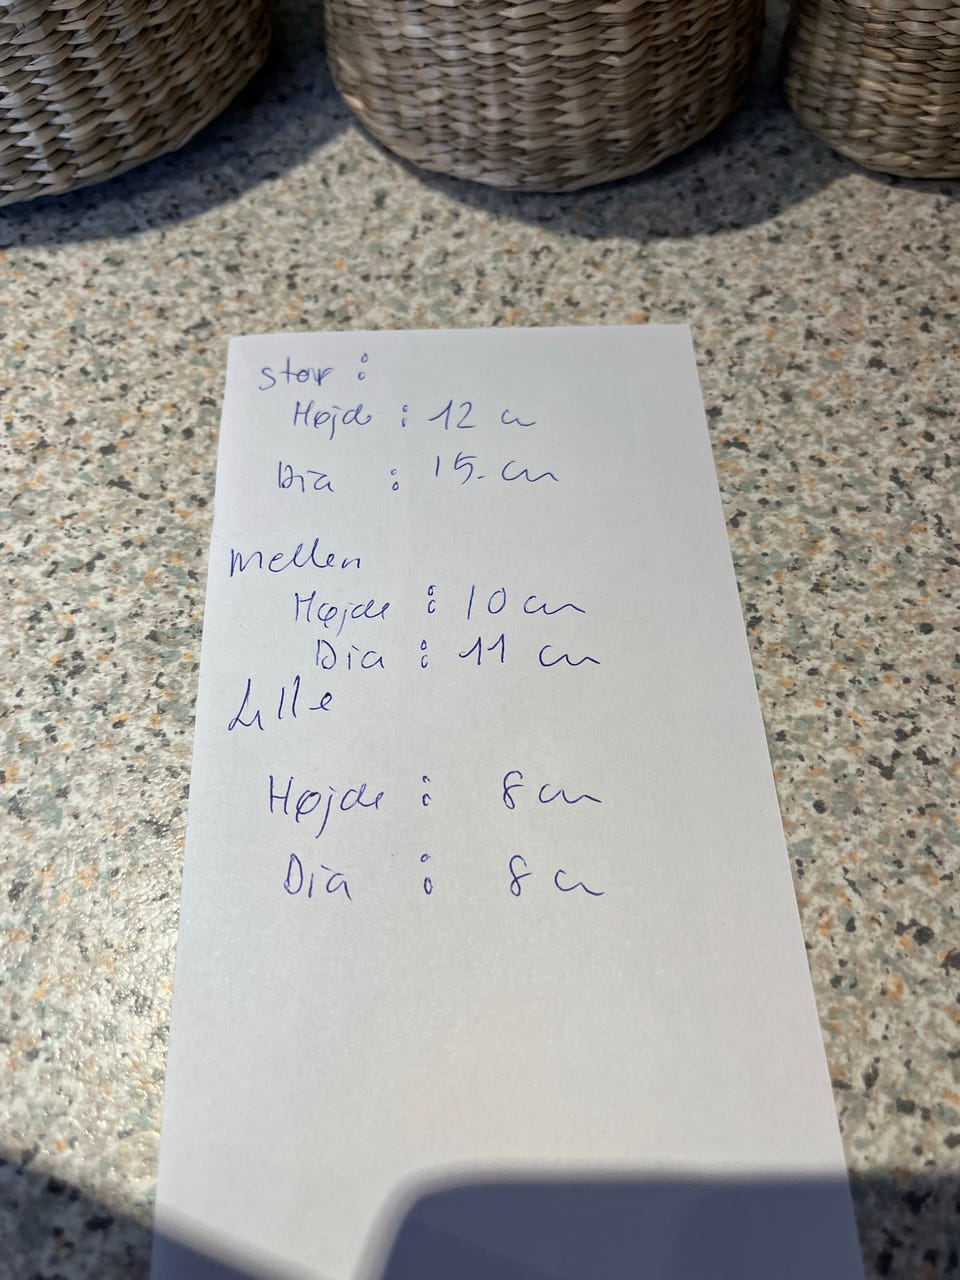 stor :
Højde : 12 cm
Dia : 15. cm
mellem
Højde : 10 cm
Dia : 11 cm
Lille
Højde : 8 cm
Dia : 8 cm